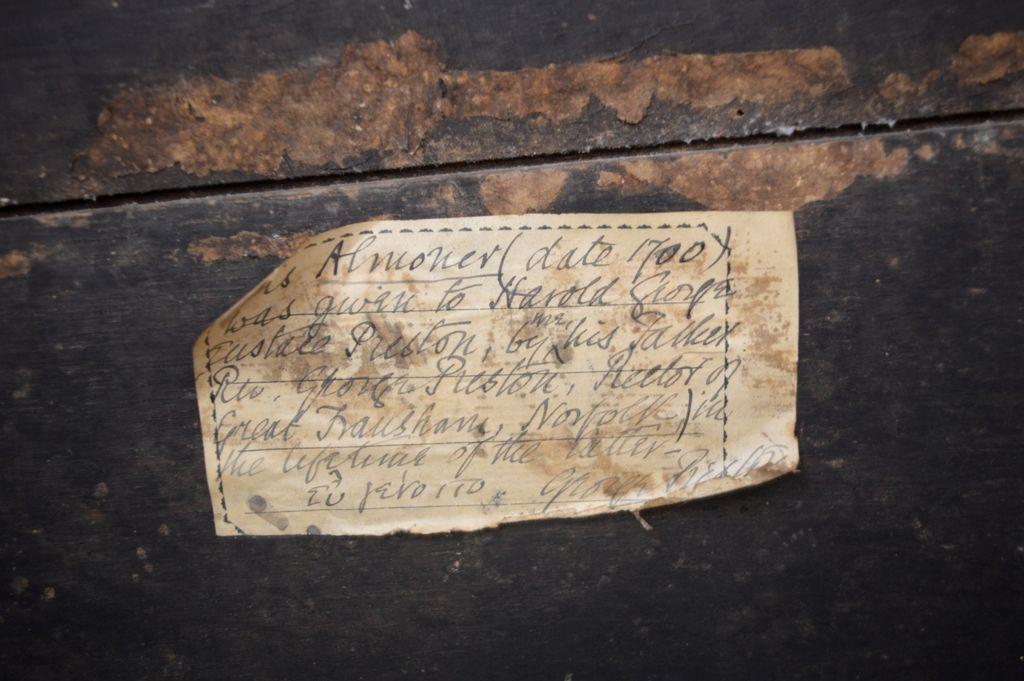 is Almoner (date 1700)
was given to Harold George
Eustace Preston, by the his Father
Rev. George Preston, Rector of
Great Fransham, Norfolk) in
the lifetime of the latter -
εὖ γένοιτο George Preston